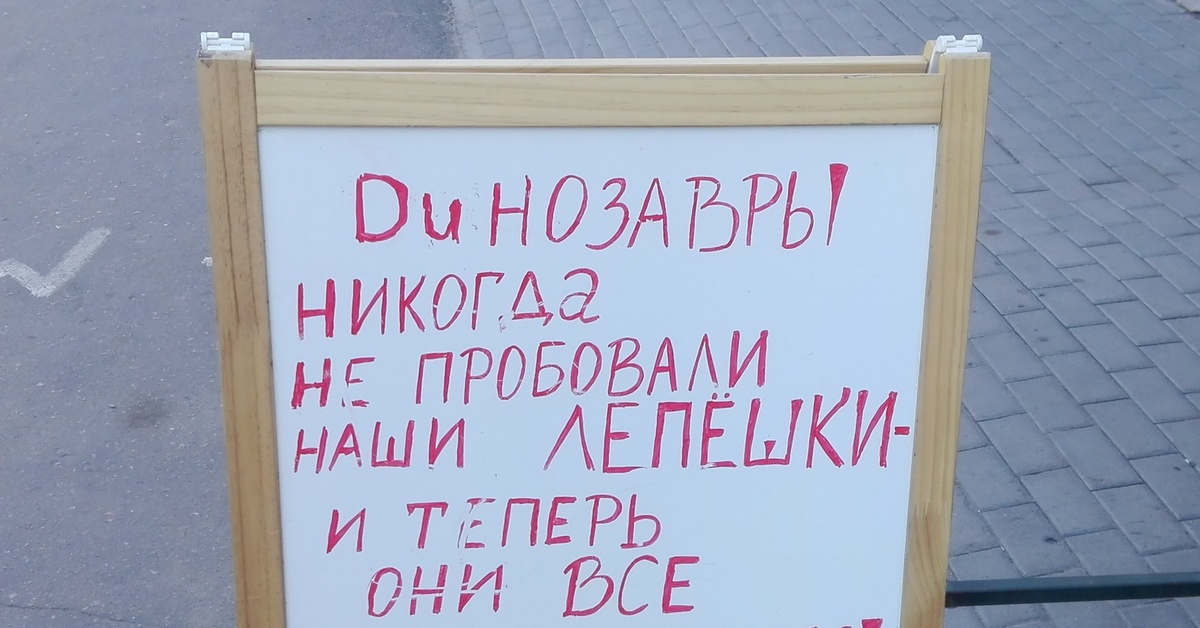 DиНОЗАВРЫ
НИКОГДа
НЕ ПРОБОВАЛИ
НАШИ ЛЕПЁШКИ-
И ТЕПЕРЬ
ОНИ ВСЕ